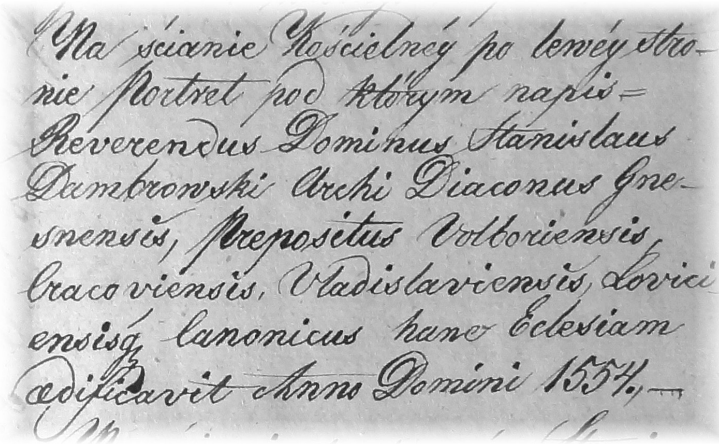 Na ścianie Kościelnéy po lewéy stro-
nie Portret pod którym napis=
Reverendus Dominus Stanislaus
Dambrowski Archi Diaconus Gne-
snensis, Prepositus Volboriensis,
Cracoviensis, Vladislaviensis, Lovici
ensisq Canonicus hanc Eclesiam
ædificavit Anno Domini 1554.,—